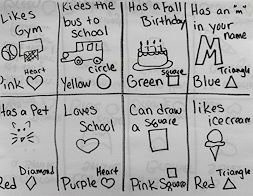 Likes
Gym
Heart
Pink
Rides the
bus to
school
circle
Yellow
Has a Fall
Birthday
square
Green
Has an "m"
in your
name
M
Triangle
Blue
Has a Pet
Diamond
Red
Loves
School
Heart
Purple
Can draw
a square
Pink Square
likes
icecream
Triangle
Red